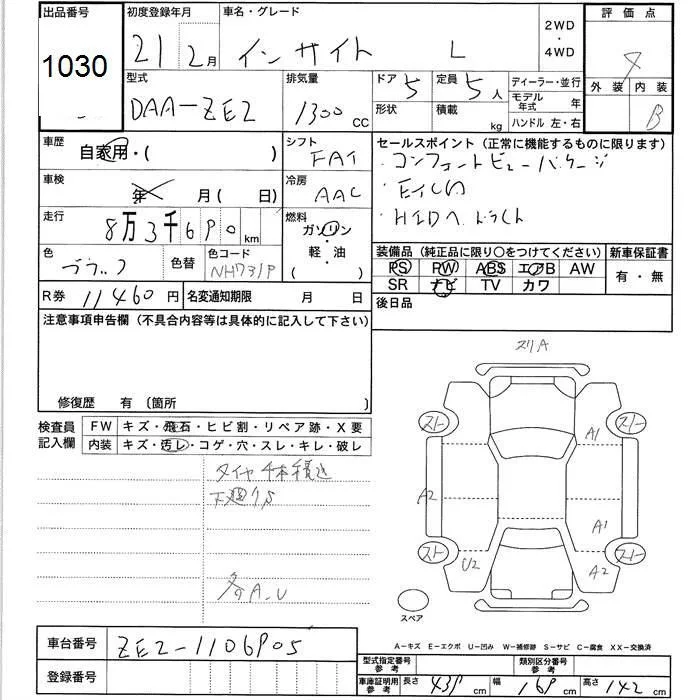 出品番号 初度登録年月 車名・グレード 評価点
1030 21 2月 インサイト L 2WD・4WD 4
型式 排気量 ドア 定員 ディーラー・並行 外装 内装
DAA-ZE2 1300 CC 5 5人 モデル年式 年 B
形状 積載 kg ハンドル 左・右
車歴 自家用・( ) シフト FAT セールスポイント (正常に機能するものに限ります)
・コンフォートビューパッケージ
車検 年 月( 日) 冷房 AAC
・ETC
・HID
走行 8万3千690km 燃料 ガソリン・軽・油( )
色 ブラック 色替 色コード NH731P
装備品 (純正品に限り〇をつけてください) 新車保証書
PS PW ABS エアB AW 有・無
SR ナビ TV カワ
R券 11460円 名変通知期限 月 日 後日品
注意事項申告欄 (不具合内容等は具体的に記入して下さい)
修復歴 有 (箇所 )
検査員記入欄 FW キズ・飛石・ヒビ割・リペア跡・X要
内装 キズ・汚レ・コゲ・穴・スレ・キレ・破レ
タイヤ4本積込
下廻りS
各A.U
スリA
スト スト
A1
A2
A1
スト スト
U2 A2
スペア
A-キズ E-エクボ U-凹み W-補修跡 S-サビ C-腐食 XX-交換済
車台番号 ZE2-1106905
登録番号
型式指定番号参考 類別区分番号参考
車庫証明用参考 長さ 439cm 幅 169cm 高さ 142cm